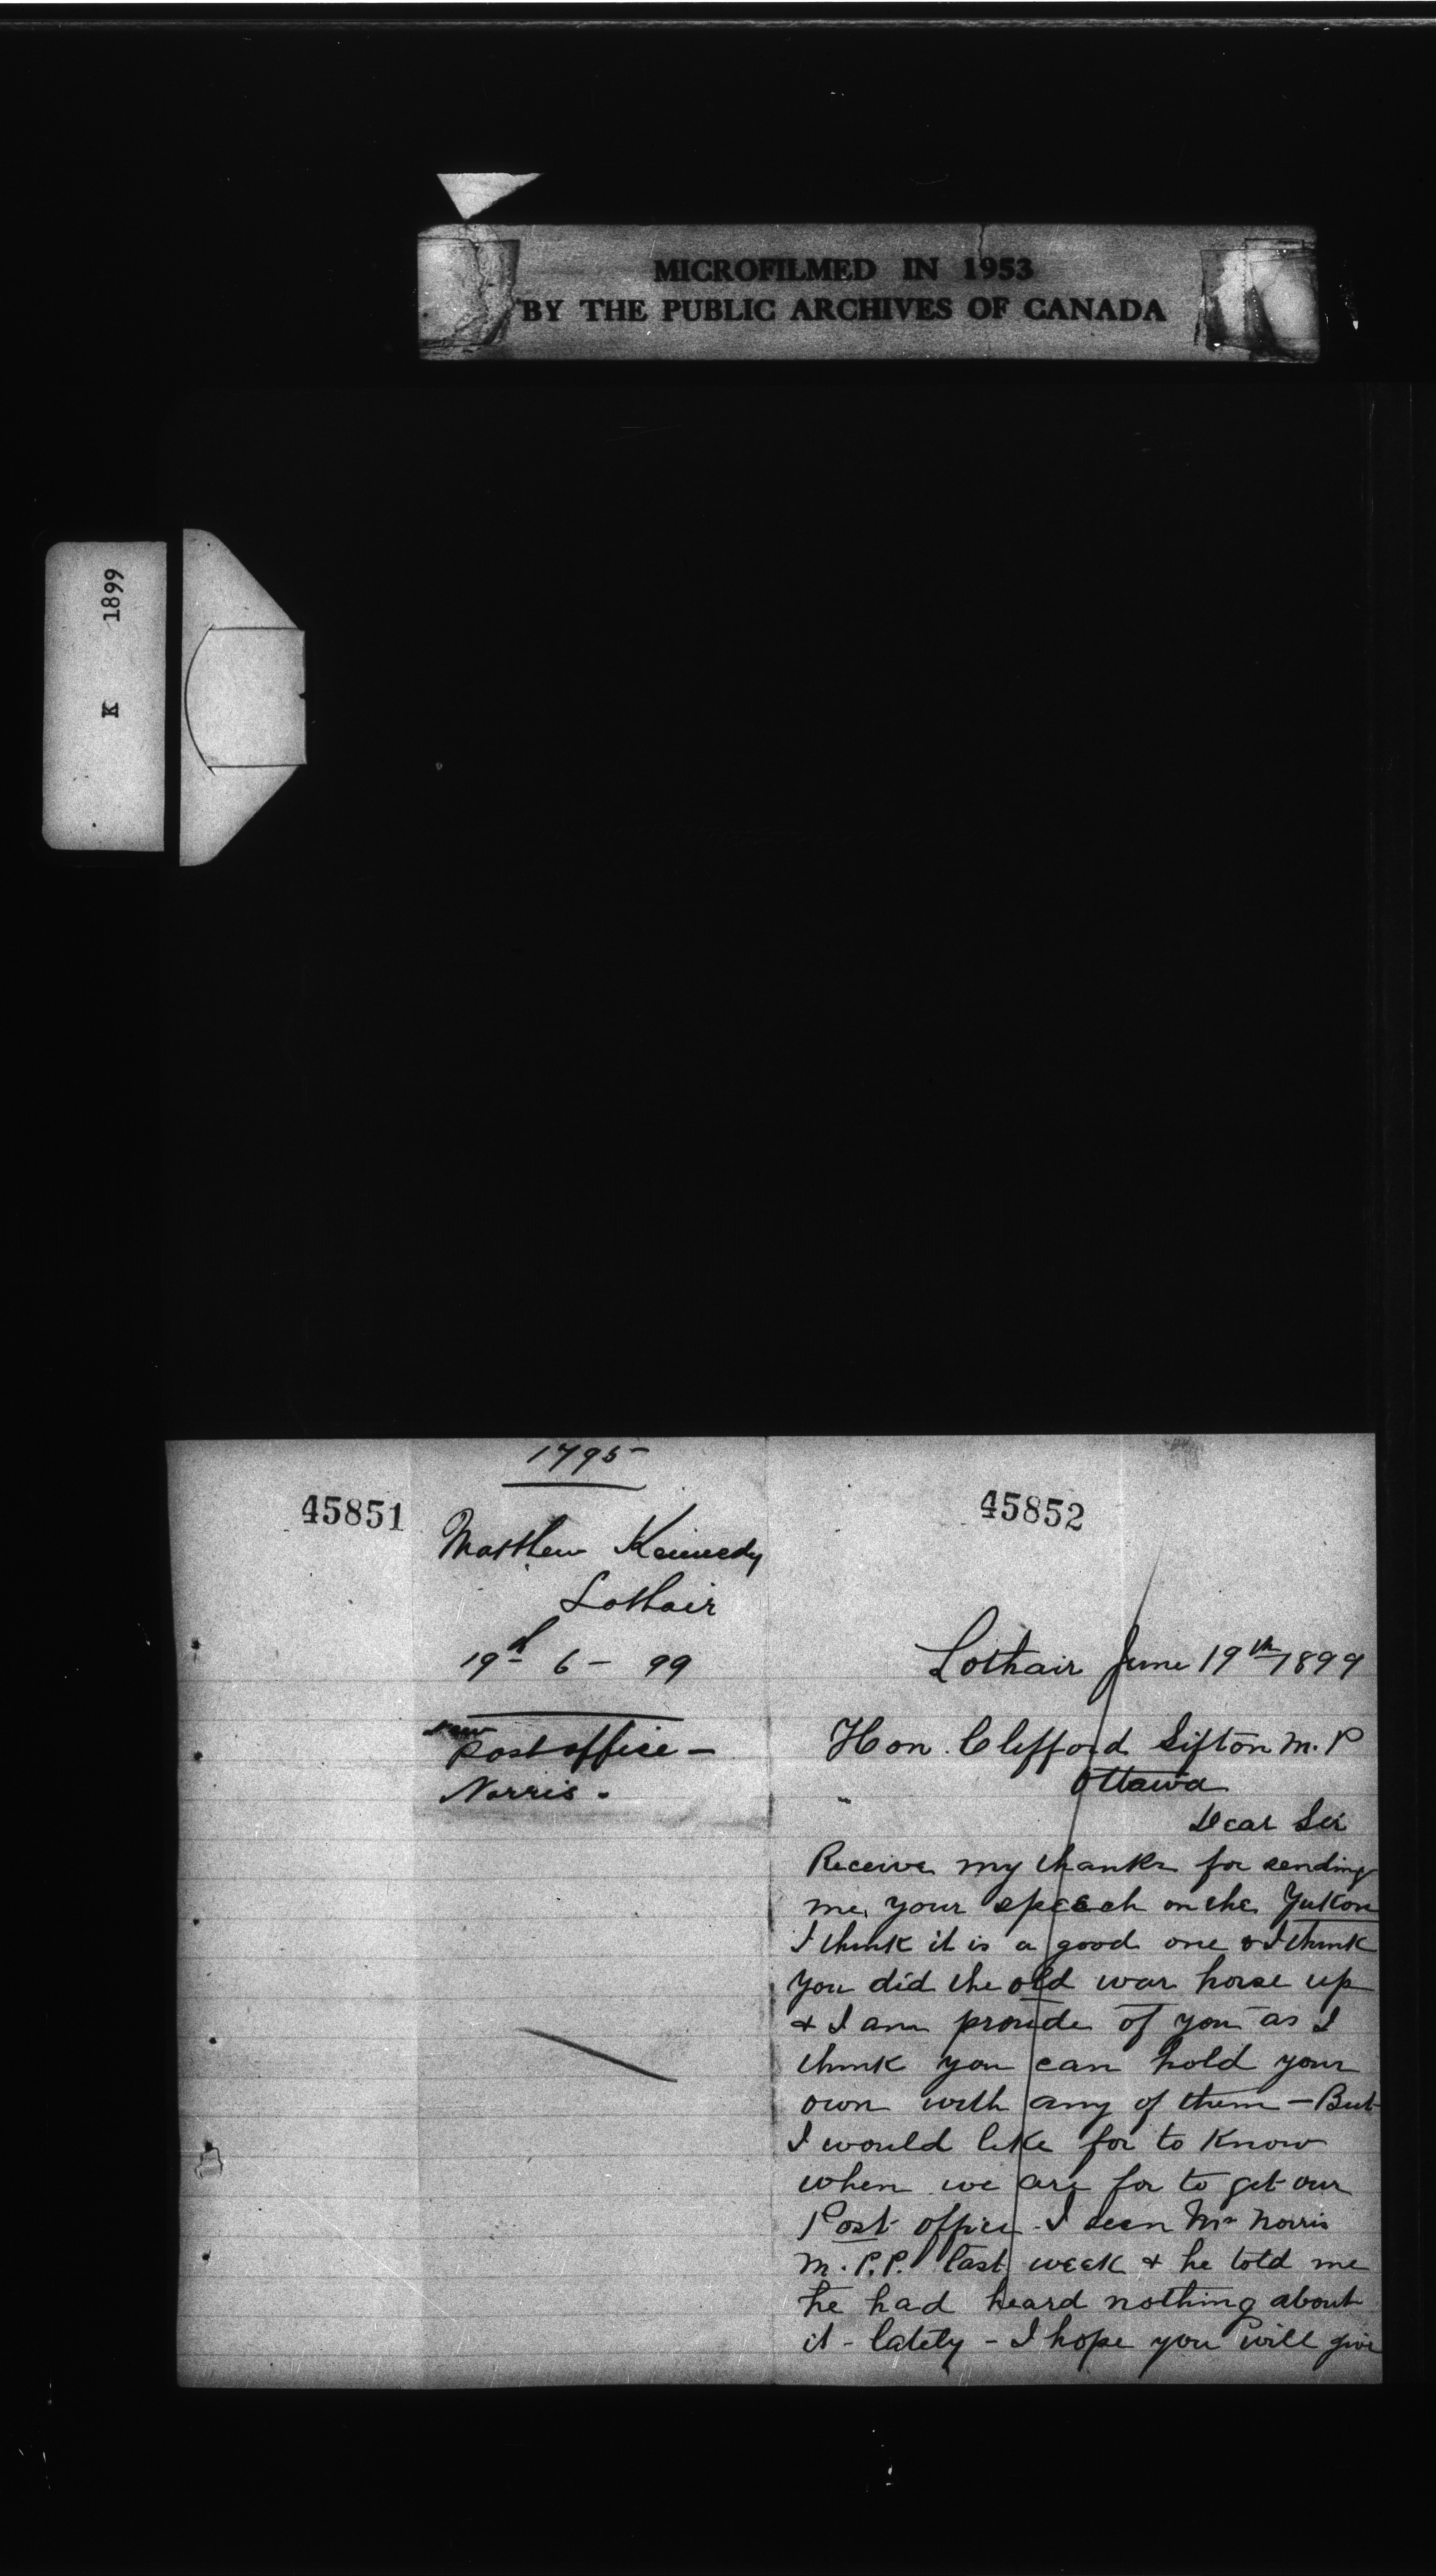 MICROFILMED IN 1953
BY THE PUBLIC ARCHIVES OF CANADA
K 1899
1795
45851
Matthew Kennedy
Lothair
19th 6 - 99
new
Post office -
Norris -
45852
Lothair June 19th 1899
Hon. Clifford Sifton M. P
Ottawa
Dear Sir
Receive my thanks for sending
me your speech on the Yukon
I think it is a good one & I think
you did the old war horse up
& I am proude of you as I
think you can hold your
own with any of them - But
I would like for to Know
when we are for to get our
Post office - I seen Mr Norris
M. P. P. last week & he told me
he had heard nothing about
it - lately - I hope you will give